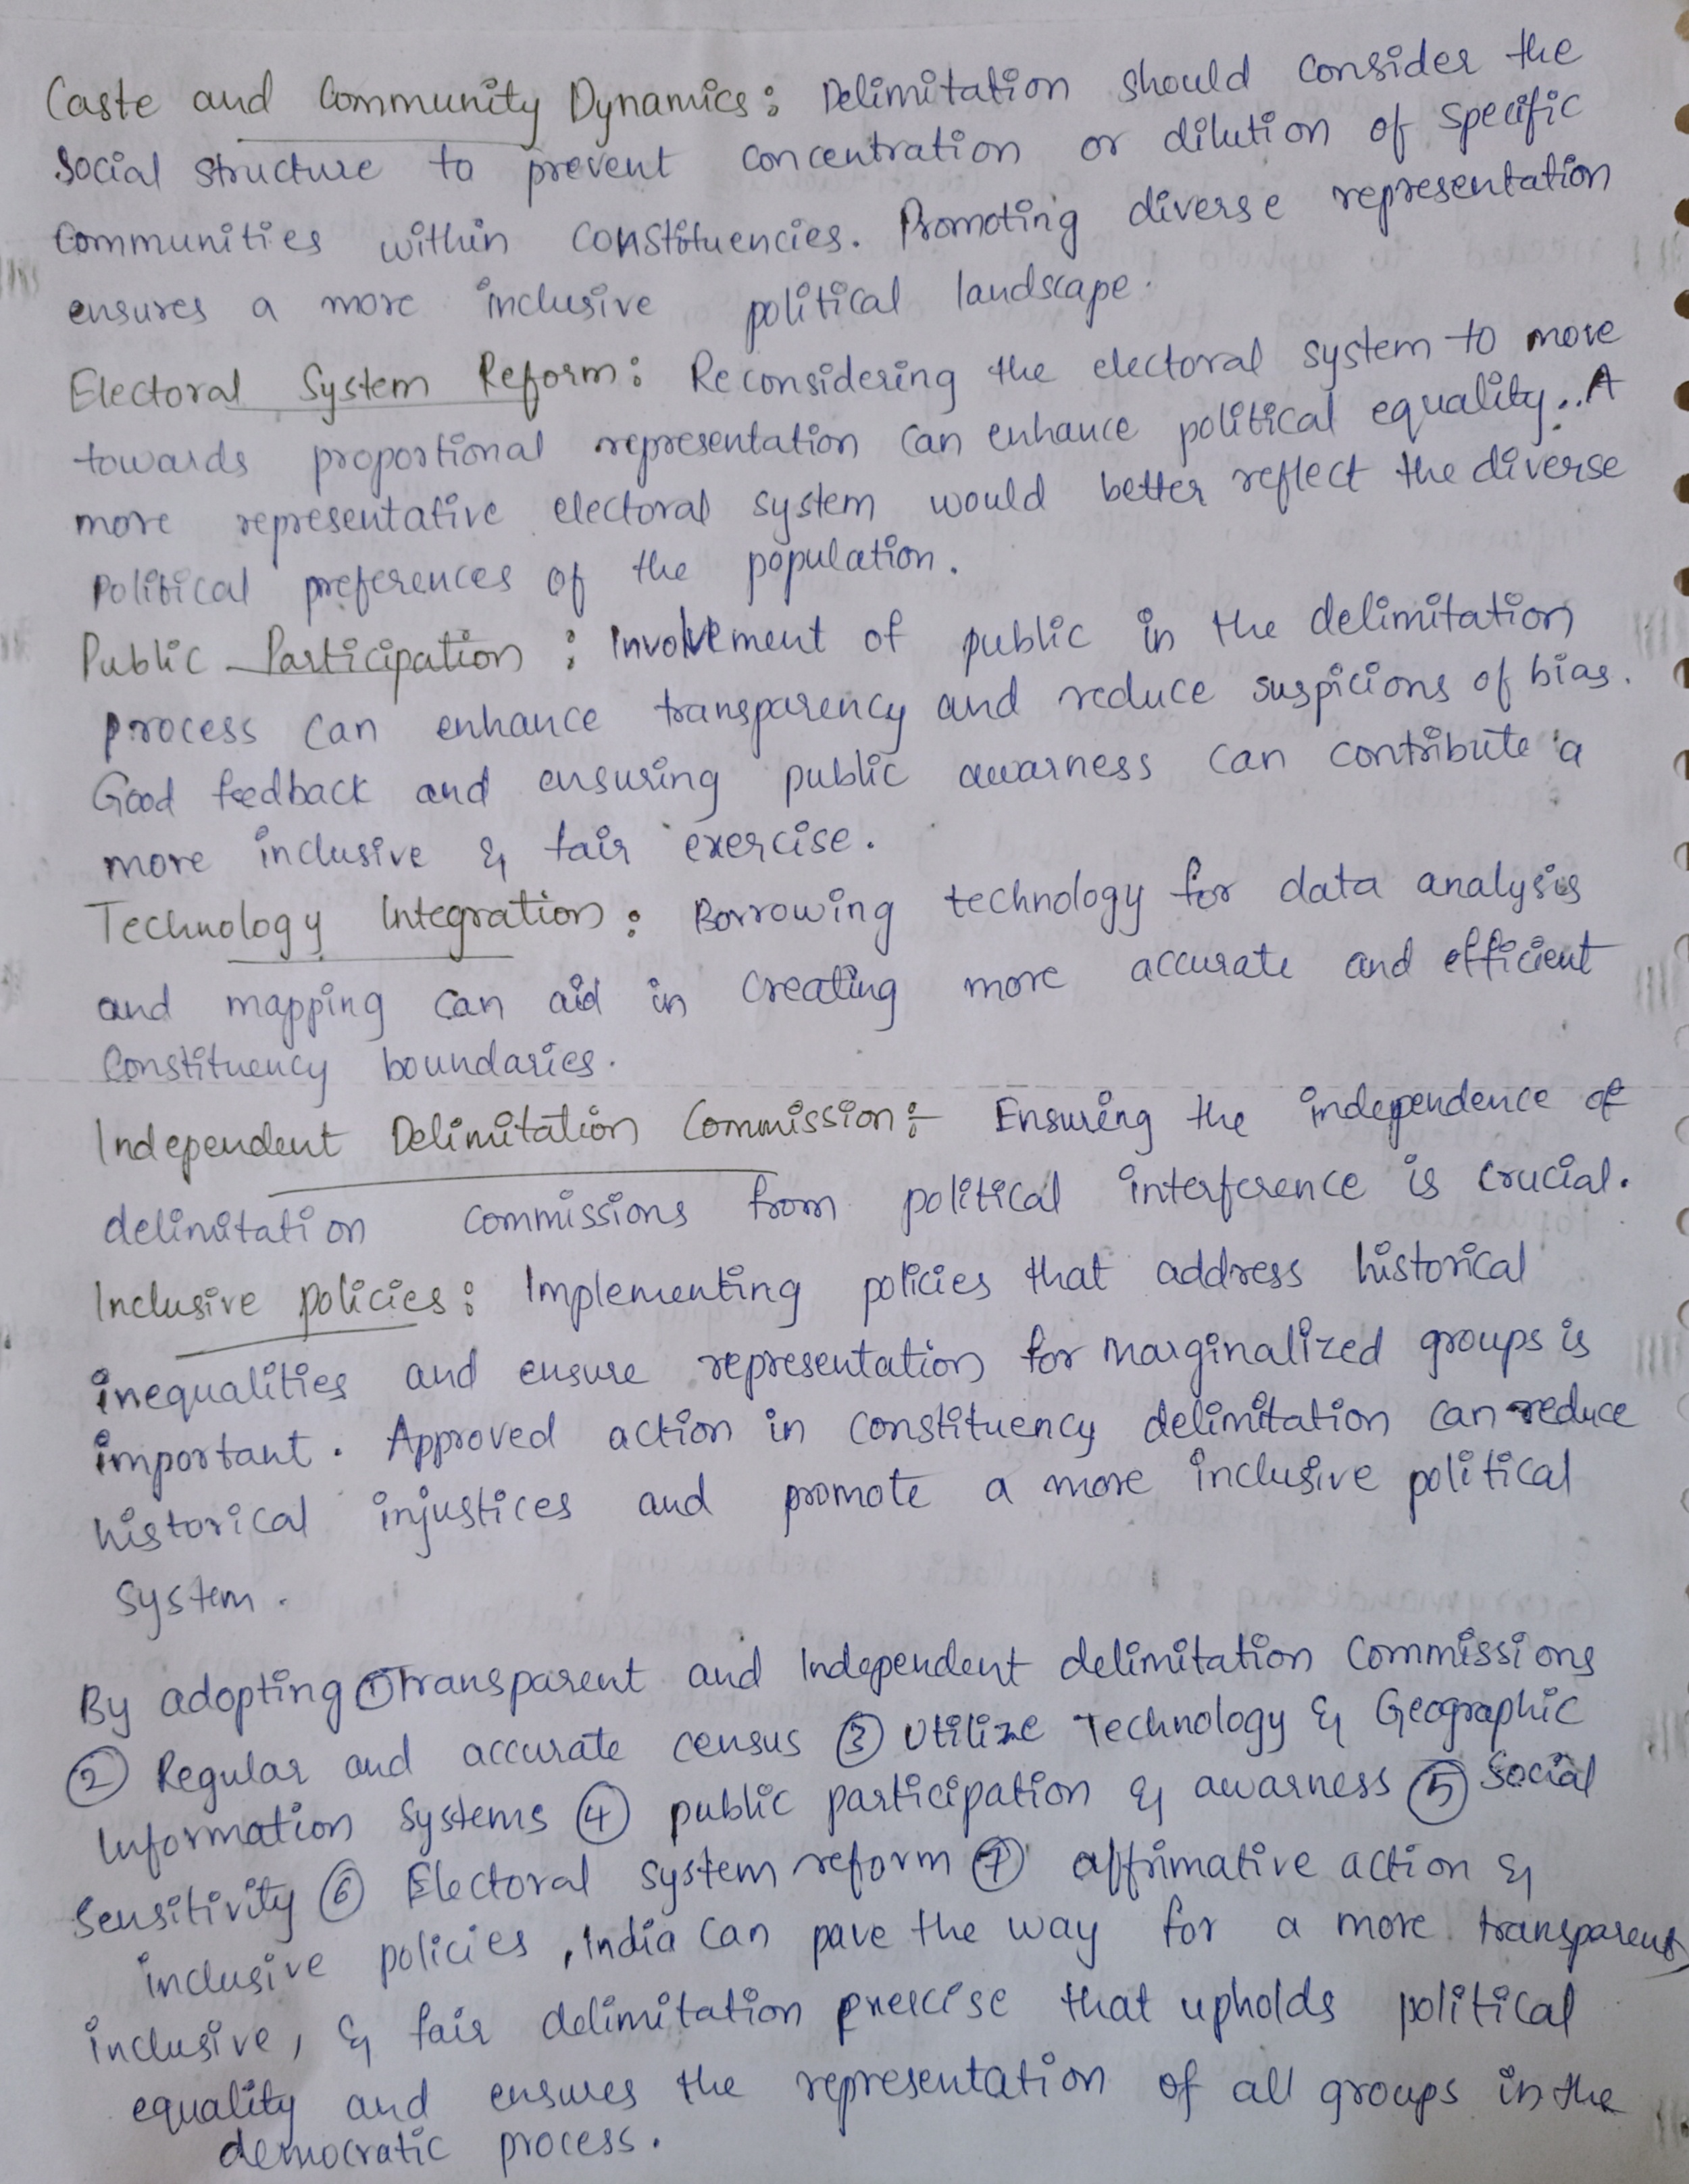 Caste and Community Dynamics: Delimitation should consider the
Social structure to prevent concentration or dilution of specific
Communities within constituencies. Promoting diverse representation
ensures a more inclusive political landscape.
Electoral System Reform: Reconsidering the electoral system to move
towards proportional representation can enhance political equality.. A
more representative electoral system would better reflect the diverse
Political preferences of the population.
Public Participation : Involvement of public in the delimitation
process can enhance transparency and reduce suspicions of bias.
Good feedback and ensuring public awarness can contribute a
more inclusive & fair exercise.
Technology Integration: Borrowing technology for data analysis
and mapping can aid in creating more accurate and efficient
Constituency boundaries.
Independent Delimitation Commission:- Ensuring the independence of
delimitation commissions from political interference is crucial.
Inclusive policies: Implementing policies that address historical
inequalities and ensure representation for marginalized groups is
important. Approved action in constituency delimitation can reduce
historical injustices and promote a more inclusive political
system.
By adopting ① transparent and Independent delimitation Commissions
② Regular and accurate census ③ Utilize Technology & Geographic
Information Systems ④ public participation & awarness ⑤ Social
Sensitivity ⑥ Electoral system reform ⑦ affrimative action &
inclusive policies, India can pave the way for a more transparent,
inclusive, & fair delimitation that upholds political
equality and ensures the representation of all groups in the
democratic process.